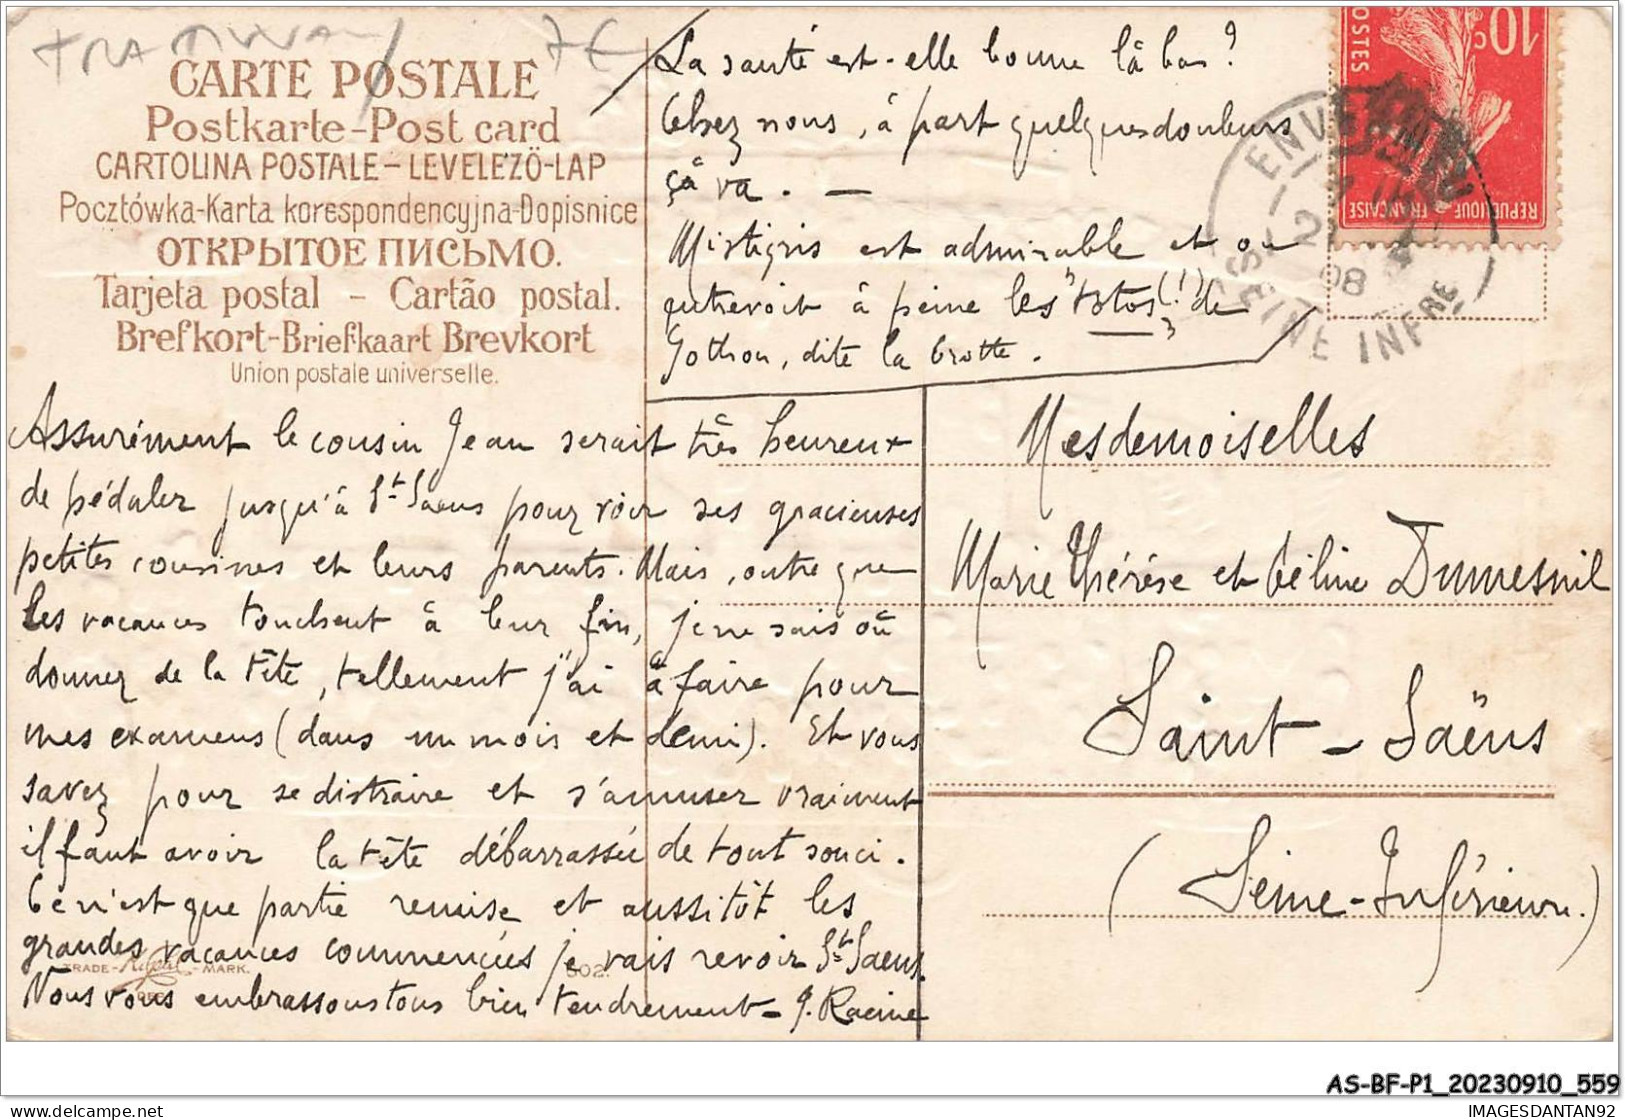 TRAMWAY 7€
CARTE POSTALE
Postkarte-Post card
CARTOLINA POSTALE-LEVELEZÖ-LAP
Pocztówka-Karta korespondencyjna-Dopisnice
ОТКРЫТОЕ ПИСЬМО.
Tarjeta postal - Cartão postal.
Brefkort-Briefkaart Brevkort
Union postale universelle.
La santé est-elle bonne là bas?
Chez nous, à part quelques douleurs
çà va. —
Mistigris est admirable et on
entrevoit à peine les "totos(!)" de
Gothon, dite la Crotte.
Assurément le cousin Jean serait très heureux
de pédaler jusqu'à St Saens pour voir ses gracieuses
petites cousines et leurs parents. Mais, outre que
les vacances touchent à leur fin, je ne sais où
donner de la tête, tellement j'ai à faire pour
mes examens (dans un mois et demi). Et vous
savez pour se distraire et s'amuser vraiment
il faut avoir la tête débarrassée de tout souci.
Ce n'est que partie remise et aussitôt les
grandes vacances commencées je vais revoir St Saens.
Nous vous embrassons tous bien tendrement - J. Racine
TRADE - MARK.
502.
10c
POSTES
REPUBLIQUE FRANÇAISE
ENVERMEU
08
SEINE INFRE
Mesdemoiselles
Marie Thérèse et Céline Dumesnil
Saint-Saëns
(Seine-Inférieure.)
AS-BF-P1_20230910_559
https://www.delcampe.net
IMAGESDANTAN92